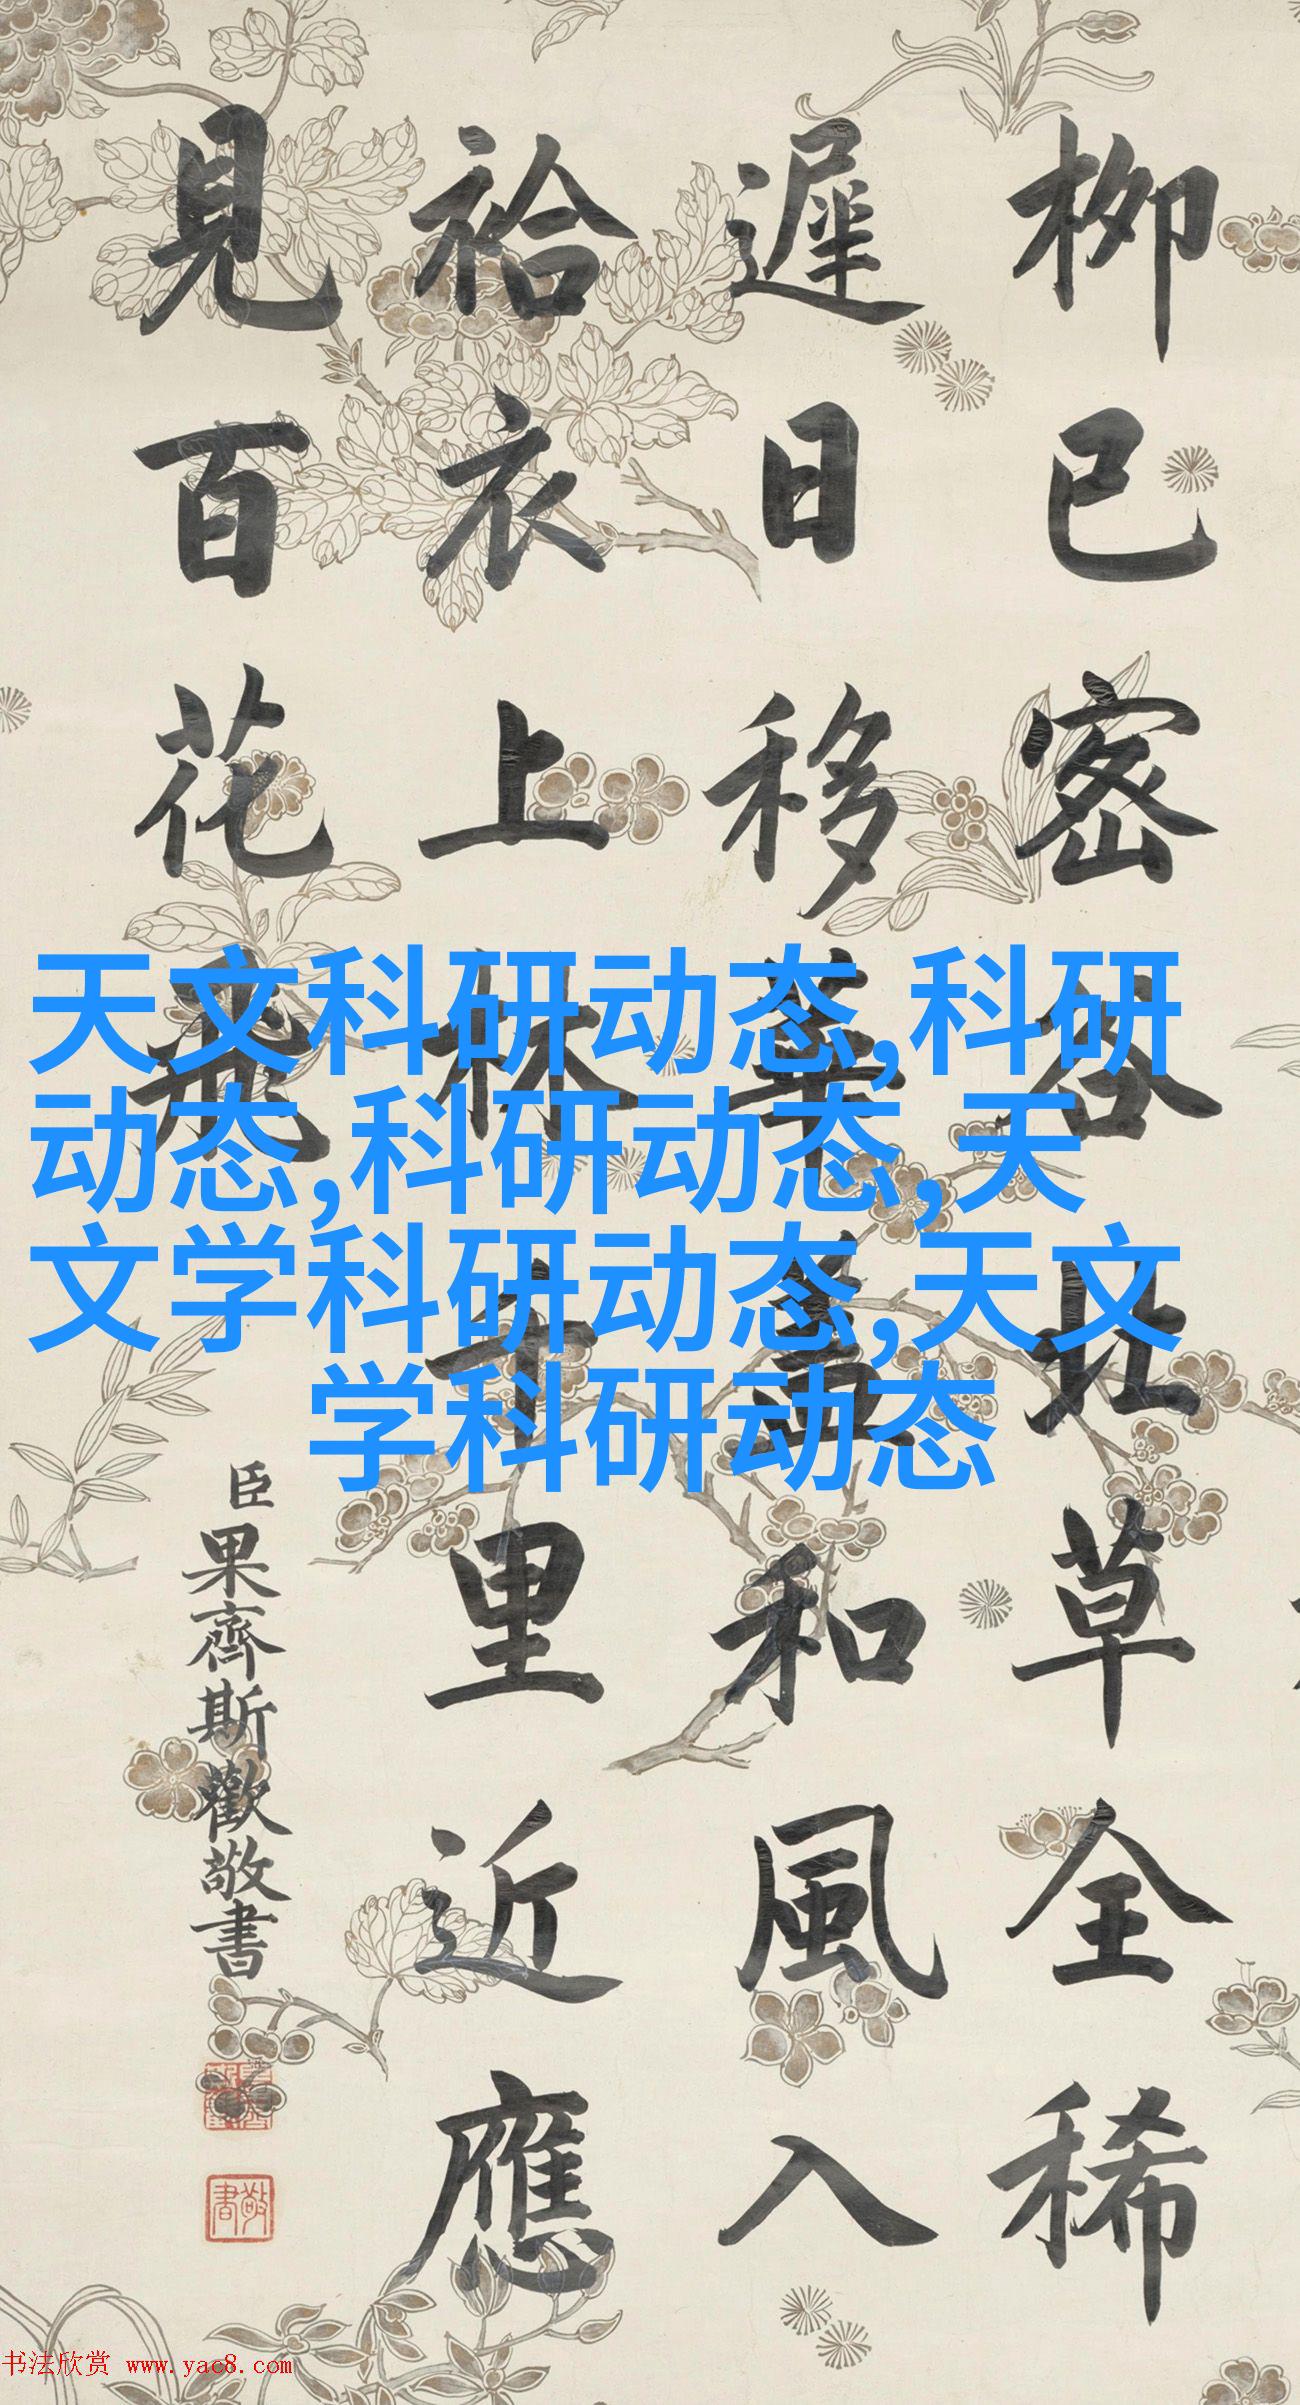 柳已密谷北草全稀
遲日移華蓋和風入
袷衣上林千里近應
見百花飛
臣果齊斯歡敬書
敬書
天文科研动态,科研
动态,科研动态,天
文学科研动态,天文
学科研动态
书法欣赏 www.yac8.com